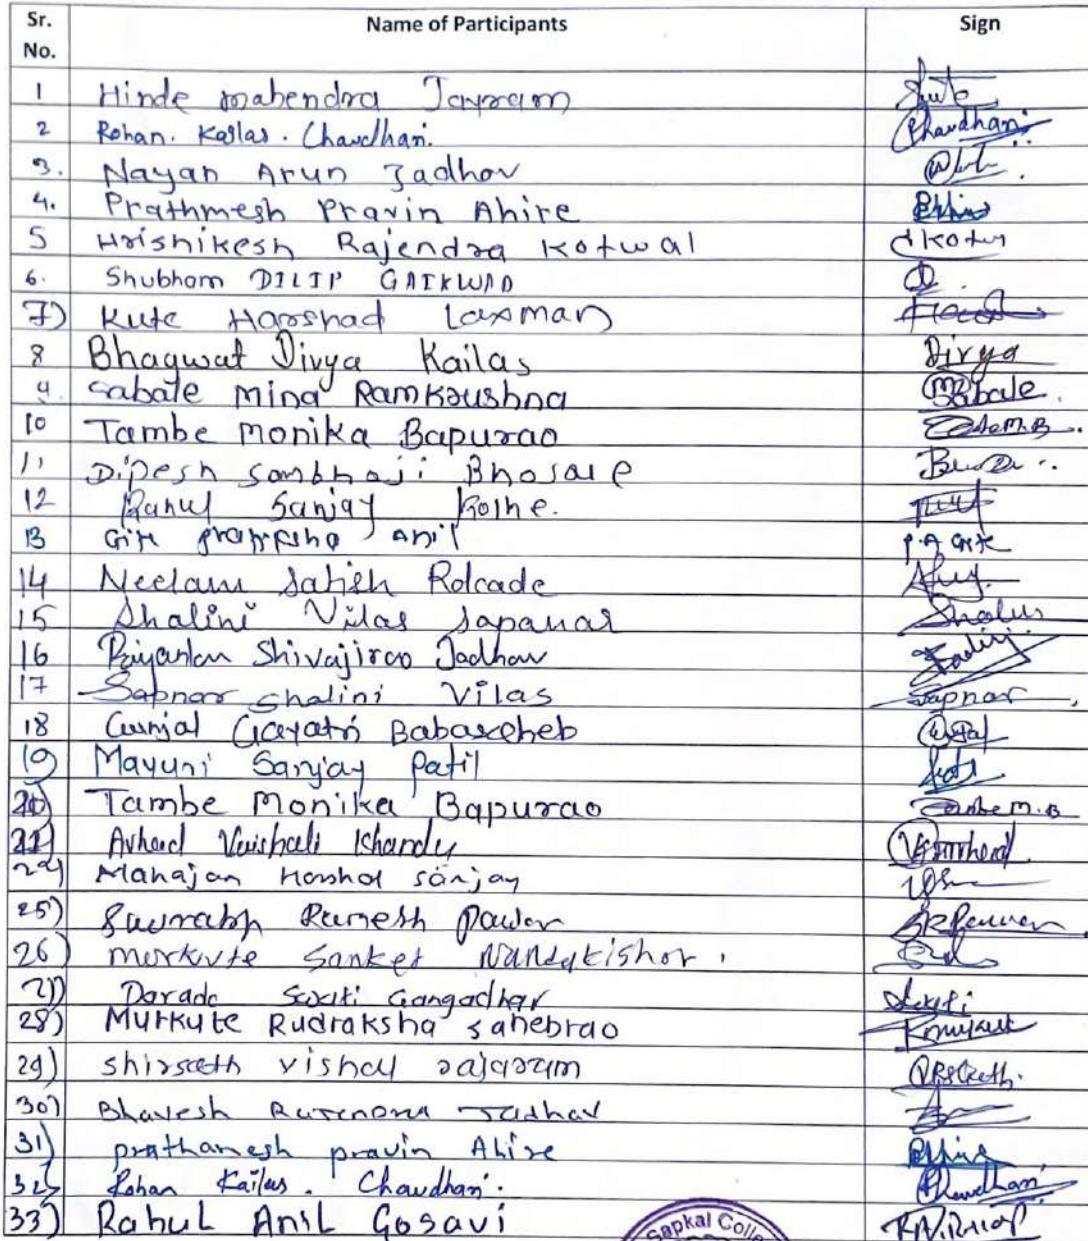 Sr. No. Name of Participants Sign
1 Hinde mahendra Jayram
2 Rohan. Kailas. Chaudhari. Chaudhari
3. Nayan Arun Jadhav
4. Prathmesh Pravin Ahire
5 Hrishikesh Rajendra Kotwal
6. Shubham DILIP GAIKWAD
7) Kute Harshad Laxman
8 Bhagwat Divya Kailas Divya
9. Sabale Mina Ramkrushna Sabale
10 Tambe Monika Bapurao
11 Dipesh Sambhaji Bhosale
12 Rahul Sanjay Kolhe.
13 Gite Anil P.A Gite
14 Neelam Satish Rokade
15 Shalini Vilas Sapanar
16 Priyanka Shivajirao Jadhav
17 Sapnar Shalini Vilas Sapnar
18 Gunjal Gayatri Babasaheb
19) Mayuri Sanjay Patil
20) Tambe Monika Bapurao Tambe M.B
21) Avhad Vaishali Khandu
24) Mahajan Harshal Sanjay
25) Saurabh Ramesh Pawar
26) Murkute Sanket Nandkishor.
27) Darade Swati Gangadhar Swati
28) Murkute Rudraksha Sahebrao
29) shirsath vishal rajaram
30) Bhavesh Jadhav
31) prathamesh pravin Ahire
32) Rohan Kailas. Chaudhari. Chaudhari
33) Rahul Anil Gosavi
Sapkal